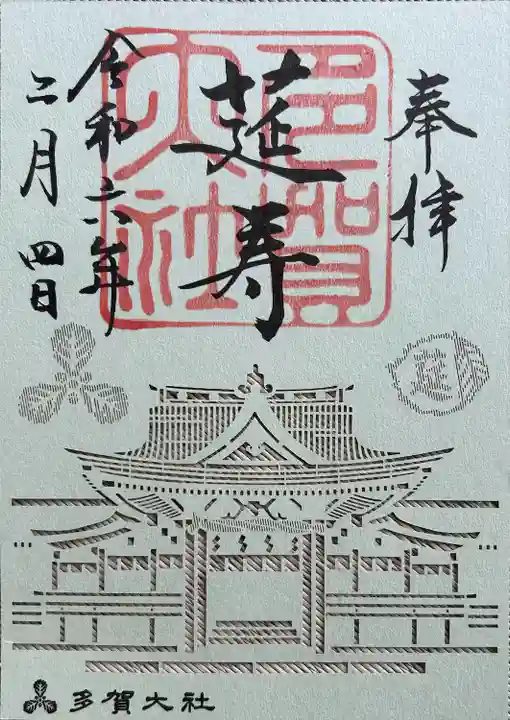 奉拝
多賀
大社
莚寿
令和六年
二月四日
莚
多賀大社